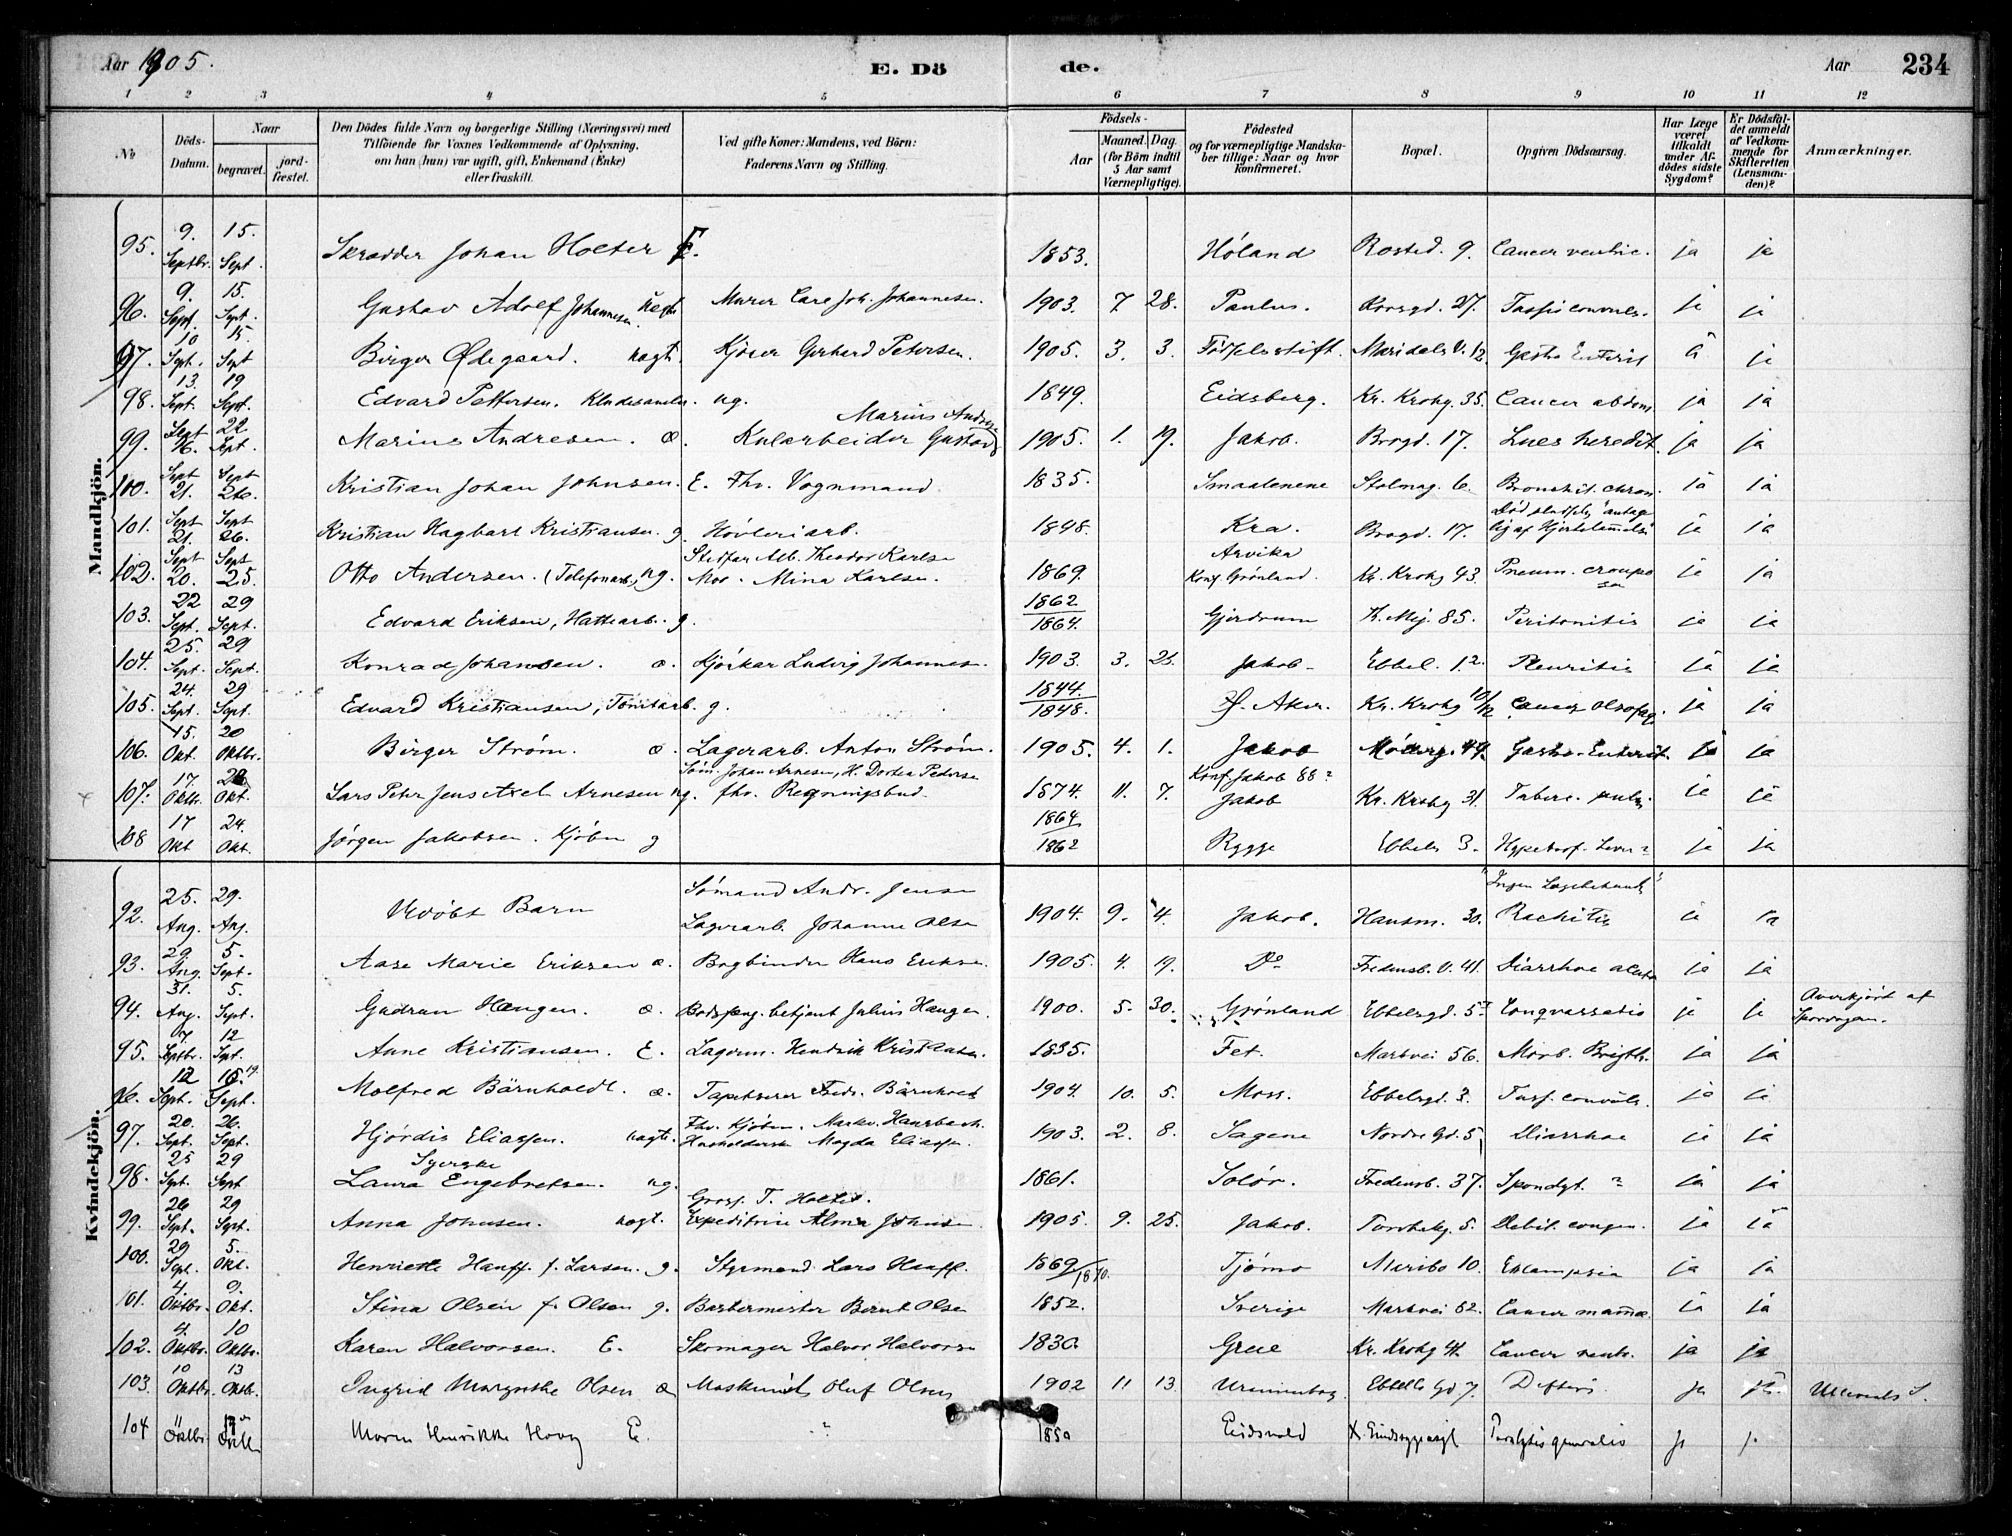 Aar 1905.
E. Döde.
Aar 234
1 2 3 4 5 6 7 8 9 10 11 12
No
Döds-Datum.
Naar
begravet.
jord-fæstet.
Den Dödes fulde Navn og borgerlige Stilling (Næringsvei) med
Tilföiende for Voxnes Vedkommende af Oplysning,
om han (hun) var ugift, gift, Enkemand (Enke)
eller fraskilt.
Ved gifte Koner: Mandens, ved Börn:
Faderens Navn og Stilling.
Födsels-
Aar
Maaned. Dag.
(for Börn indtil
5 Aar samt
Værnepligtige).
Födested
og for værnepligtige Mandska-
ber tillige: Naar og hvor
konfirmeret.
Bopæl.
Opgiven Dödsaarsag.
Har Læge
været
tilkaldt
under Af-
dödes sidste
Sygdom?
Er Dödsfal-
det anmeldt
af Vedkom-
mende for
Skifteretten
(Lensman-
den)?
Anmærkninger.
Mandkjön.
95. 9. Septbr. 15. Sept. Skrædder Johan Holter E. 1853. Höland Rosted. 9. Cancer ventric. ja ja
96. 9. Sept. 15. Sept. Gustav Adolf Johannesen nægt. Murer Carl Joh. Johannesen. 1903. 7. 28. Paulus. Korsgd. 27. ja ja
97. 10 Sept. 15. Sept Birger Ødegaard. uægt. Kjörer Gerhard Petersen. 1905. 3. 3. Födselsstift. Maridals V. 12. Gastro Enterit ja
98. 13. Sept. 19 Sept. Edvard Pettersen. Kludesamler. ug. 1849. Eidsberg. Kr. Krohg. 35. Cancer abdom. ja ja
99. Sept 16. 22 Sept. Marius Andresen. æ. Kularbeider Gustav Marius Andrese 1905. 1. 19. Jakob. Brogd. 17. Lues heredit. ja ja
100. Sept 21. Sept 26. Kristian Johan Johnsen. E. Fhv. Vognmand 1835. Smaalenene Stolmag. 6. Bronchit. chron. ja ja
101. Sept 21. Sept 26. Kristian Hagbart Kristiansen. g. Hövleriarb. 1848. Kra. Brogd. 17. ja ja
102. Sept 20. Sept 25. Otto Andersen. (Telefonarb.) ug. Stedfar Alb. Theodor Karlse Mor. Mina Karlsen. 1869. Arvika Konf. Grönland. Kr. Krohg 43. Pneum. croupo sa ja ja
103. 22 Sept. 29 Sept. Edvard Eriksen, Hattearb. g. 1862 1864. Gjerdrum K. Mej. 85. Peritonitis ja ja
104. 25. Sept. 29 Sept. Konrad Johansen. æ. Ludvig Johannes. 1903. 3. Jakob. Ebbel. 12. Pleuritis ja ja
105. 24. Sept. 29 Sept. Edvard Kristiansen, Tomtarb. g. 1844. 1848. Ø. Aker. Kr. Krohg 10/12 Cancer Oesofag. ja ja
106. 15. Okt. 20 Oktbr. Birger Ström. æ. Lagerarb. Anton Ström. 1905. 4. 1. Jakob Möllerg. 49. Gastro-Enterit. ja ja
107. 17. Oktb. Okt. Lars Peter Jens Axel Arnesen ug. Söm. Johan Arnesen, H. Dortea Pederse fhv. Regningsbud. 1874. 11. 7. Konf. Jakob 88? Jakob Kr. Krohg 31. Tuberc. pulm. ja ja
108 17 Okt 24. Okt. Jörgen Jakobsen. Kjöbm g 1864 1862 Rygge Ebbels 3. Hypertrof. Lever? ja ja
Kvindekjön.
92. 25. Aug. 29. Aug. Udöbt Barn Sömand Andr. Jense Lagerarb. Johanne Olse 1904. 9. 4. Jakob. Hausm. 30. "Ingen Lægebehandl" Rachitis ja
93. 29. Aug. 5. Sept. Aase Marie Eriksen æ. Bogbinder Hans Erikse. 1905. 4. 19. Do Fredensb. V. 41. Diarrhoe acuta ja ja
94. 31. Aug. 5. Sept. Gudrun Haugen. æ. Bodsfeng. betjent Julius Haugen. 1900. 5. 30. Grönland Ebbelsgd. 5 Conqvassatio ja ja Overkjört af Sporvogn.
95. 7. Septbr. 12 Spt. Anne Kristiansen. E. Lagerm. Hendrik Kristiansen. 1835. Fet. Markvei 56. Morb. Brigth. ja ja
96. 12 Sept. 15. Sept. Molfred Bärnholdt. æ. Tapetserer Fredr. Bärnholdt 1904. 10. 5. Moss. Ebbelsgd. 3. Tuss. convuls. ja ja
97. 20. Sept. 26. Sept. Hjördis Eliassen. uægte. Fhv. Kjöbm. Markv. Haursbach. Husholderske Magda Eliassen. 1903. 2. 8. Sagene Nordre Gd. 5 Diarrhoe ja ja
98. 25 Spt. 29 Sept Syerske Laura Engebretsen. ug. 1861. Solör. Fredensb. 37. Spondyl. ? ja ja
99. 26 Sept. 29 Sept. Anna Johnsen. uægt. Gross. T. Holter. Expeditrice Alma Johnse. 1905. 9. 25. Jakob. Torvbakg. 5. Debil. congen. ja ja
100. 29 Sept. 5. Okt. Henriette Hauff f. Larsen. g. Styrmand Lars Hauff. 1869/1870. Tjömö Maribo 10. Eklampsia ja ja
101. 4. Oktbr. 9. Okt. Stina Olsen f. Olsen g. Barbermester Bernt Olse 1852. Sverige Markvei 82. Cancer mamma ja ja
102. 4. Oktbr. 10 Oktbr. Karen Halvorsen. E. Skomager Halvor Halvorse 1830 Grue Kr. Krohg 41. Cancer ventr. ja ja
103. 10 Oktbr. 13 Oktb. Ingrid Margrethe Olsen æ Maskinist Oluf Olsen 1902 11 13. Uranienborg. Ebbells Gd 7. Difteri. ja ja Ullevaals S.
104 Oktbr. Maren Henrikke Hovg E. 1850 Eidsvold Paralysis generalis ja